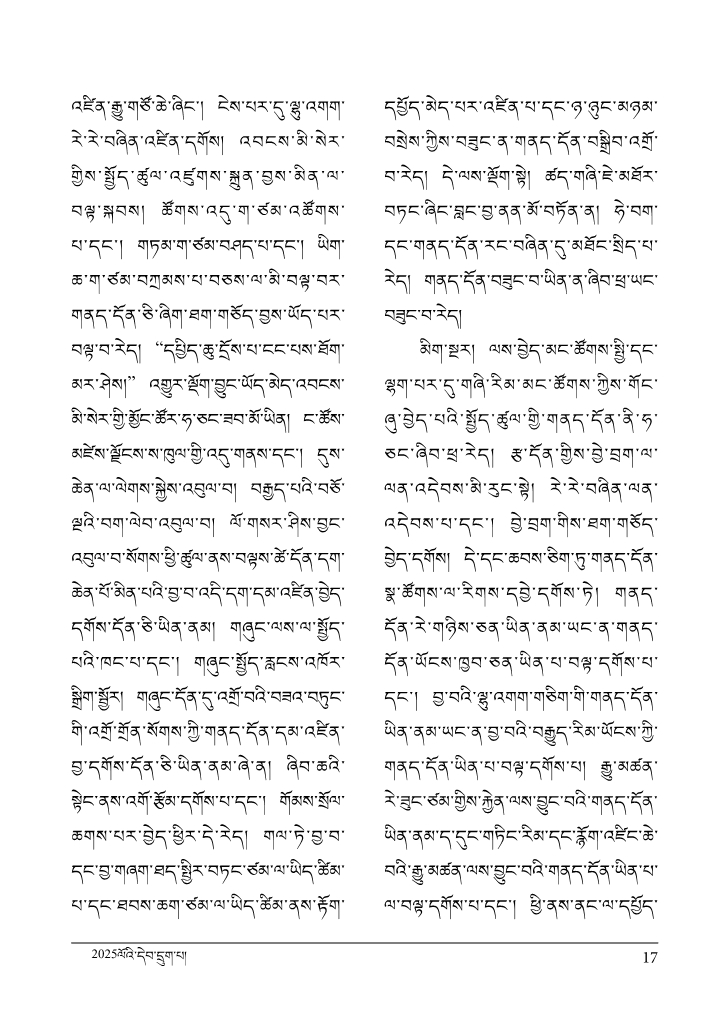 འཛིན་རྒྱུ་གཙོ་ཆེ་ཞིང་། ངེས་པར་དུ་ལྷུ་འགག་
རེ་རེ་བཞིན་འཛིན་དགོས། འབངས་མི་སེར་
གྱིས་སྤྱོད་ཚུལ་འཛུགས་སྐྲུན་བྱས་མིན་ལ་
བལྟ་སྐབས། ཚོགས་འདུ་ག་ཙམ་འཚོགས་
པ་དང་། གཏམ་ག་ཙམ་བཤད་པ་དང་། ཡིག་
ཆ་ག་ཙམ་བཀྲམས་པ་བཅས་ལ་མི་བལྟ་བར་
གནད་དོན་ཅི་ཞིག་ཐག་གཅོད་བྱས་ཡོད་པར་
བལྟ་བ་རེད། “དཔྱིད་ཆུ་དྲོས་པ་ངང་པས་ཐོག་
མར་ཤེས།” འགྱུར་ལྡོག་བྱུང་ཡོད་མེད་འབངས་
མི་སེར་གྱི་མྱོང་ཚོར་ཧ་ཅང་ཟབ་མོ་ཡིན། ང་ཚོས་
མཛེས་ལྗོངས་ས་ཁུལ་གྱི་འདུ་གནས་དང་། དུས་
ཆེན་ལ་ལེགས་སྐྱེས་འབུལ་བ། བརྒྱད་པའི་བཅོ་
ལྔའི་བག་ལེབ་འབུལ་བ། ལོ་གསར་ཤིས་བྱང་
འབུལ་བ་སོགས་ཕྱི་ཚུལ་ནས་བལྟས་ཚེ་དོན་དག་
ཆེན་པོ་མིན་པའི་བྱ་བ་འདི་དག་དམ་འཛིན་བྱེད་
དགོས་དོན་ཅི་ཡིན་ནམ། གཞུང་ལས་ལ་སྤྱོད་
པའི་ཁང་པ་དང་། གཞུང་སྤྱོད་རླངས་འཁོར་
སྒྲིག་སྦྱོར། གཞུང་དོན་དུ་འགྲོ་བའི་བཟའ་བཏུང་
གི་འགྲོ་གྲོན་སོགས་ཀྱི་གནད་དོན་དམ་འཛིན་
བྱ་དགོས་དོན་ཅི་ཡིན་ནམ་ཞེ་ན། ཞིབ་ཆའི་
སྟེང་ནས་འགོ་རྩོམ་དགོས་པ་དང་། གོམས་སྲོལ་
ཆགས་པར་བྱེད་ཕྱིར་དེ་རེད། གལ་ཏེ་བྱ་བ་
དང་བྱ་གཞག་ཐད་སྤྱིར་བཏང་ཙམ་ལ་ཡིད་ཚིམ་
པ་དང་ཐབས་ཆག་ཙམ་ལ་ཡིད་ཚིམ་ནས་རྟོག་
དཔྱོད་མེད་པར་འཛིན་པ་དང་ཉ་ཉུང་མཉམ་
བསྲེས་ཀྱིས་བཟུང་ན་གནད་དོན་བསྒྲིབ་འགྲོ་
བ་རེད། དེ་ལས་ལྡོག་སྟེ། ཚད་གཞི་ཇེ་མཐོར་
བཏང་ཞིང་བླང་བྱ་ནན་མོ་བཏོན་ན། ཧེ་བག་
དང་གནད་དོན་རང་བཞིན་དུ་མཐོང་སྲིད་པ་
རེད། གནད་དོན་བཟུང་བ་ཡིན་ན་ཞིབ་ཕྲ་ཡང་
བཟུང་བ་རེད།
མིག་སྔར། ལས་བྱེད་མང་ཚོགས་སྤྱི་དང་
ལྷག་པར་དུ་གཞི་རིམ་མང་ཚོགས་ཀྱིས་གོང་
ཞུ་བྱེད་པའི་སྤྱོད་ཚུལ་གྱི་གནད་དོན་ནི་ཧ་
ཅང་ཞིབ་ཕྲ་རེད། རྩ་དོན་གྱིས་བྱེ་བྲག་ལ་
ལན་འདེབས་མི་རུང་སྟེ། རེ་རེ་བཞིན་ལན་
འདེབས་པ་དང་། བྱེ་བྲག་གིས་ཐག་གཅོད་
བྱེད་དགོས། དེ་དང་ཆབས་ཅིག་ཏུ་གནད་དོན་
སྣ་ཚོགས་ལ་རིགས་དབྱེ་དགོས་ཏེ། གནད་
དོན་རེ་གཉིས་ཅན་ཡིན་ནམ་ཡང་ན་གནད་
དོན་ཡོངས་ཁྱབ་ཅན་ཡིན་པ་བལྟ་དགོས་པ་
དང་། བྱ་བའི་ལྷུ་འགག་གཅིག་གི་གནད་དོན་
ཡིན་ནམ་ཡང་ན་བྱ་བའི་བརྒྱུད་རིམ་ཡོངས་ཀྱི་
གནད་དོན་ཡིན་པ་བལྟ་དགོས་པ། རྒྱུ་མཚན་
རེ་ཟུང་ཙམ་གྱིས་རྐྱེན་ལས་བྱུང་བའི་གནད་དོན་
ཡིན་ནམ་ད་དུང་གཏིང་རིམ་དང་རྙོག་འཛིང་ཆེ་
བའི་རྒྱུ་མཚན་ལས་བྱུང་བའི་གནད་དོན་ཡིན་པ་
ལ་བལྟ་དགོས་པ་དང་། ཕྱི་ནས་ནང་ལ་དཔྱོད་
2025ལོའི་དེབ་དྲུག་པ།
17